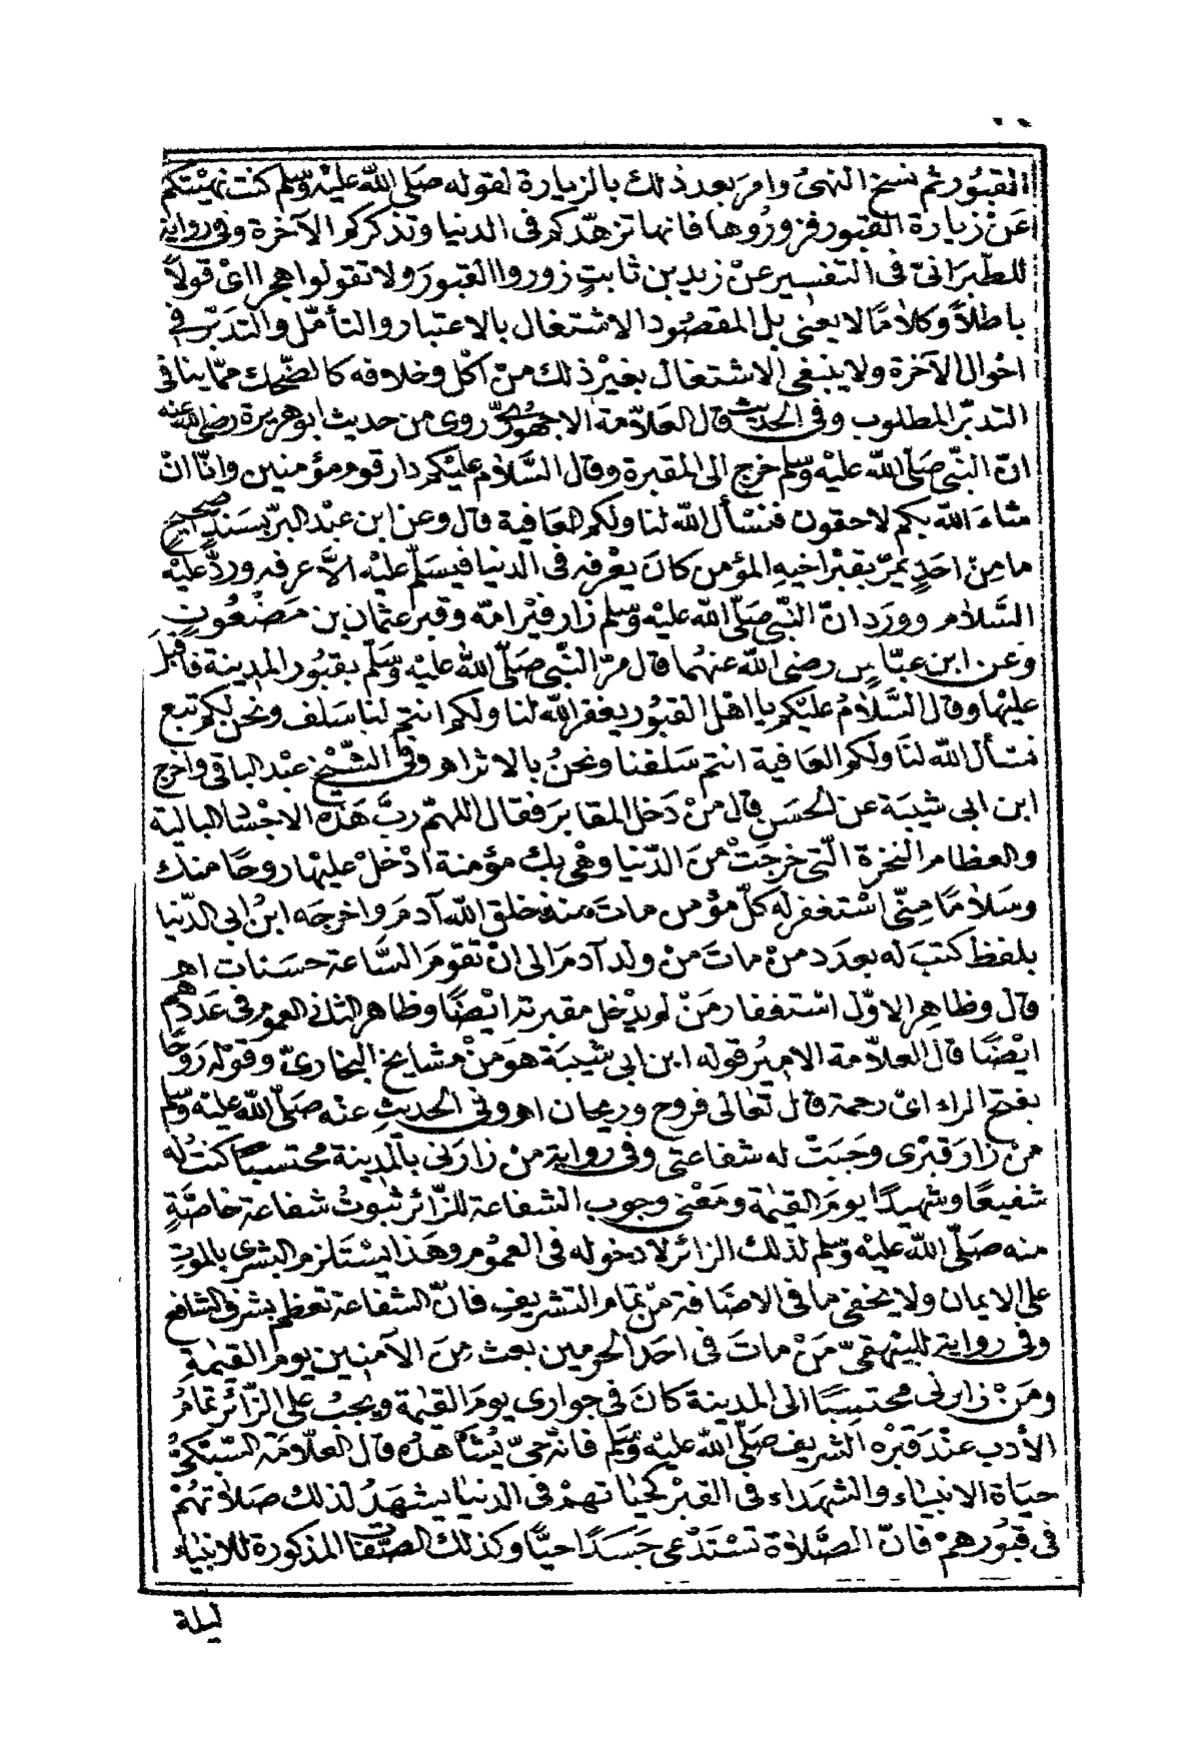 القبور ثم نسخ النهىُ وامرَ بعد ذلك بالزيارة لقوله صَلى اللّٰه عليْه وسّلم كنت نهيْتكم
عَنْ زيارة القبور فزورُوها فانها تزهّدكم فى الدنيا وتذكركم الآخرة وفى رواية
للطبَرَانىّ فى التفسير عنْ زيد بن ثابتٍ زوروا القبورَ ولا تقولوا هجرا اىْ قولاً
باطلاً وكلامًا لا يعنى بل المقصُود الاشتغال بالاعتبار والتأمّل والتدبّر فى
احْوال الآخرة ولا ينبغى الاشتغال بغيْر ذلك منْ اكْل وخلافه كالضّحك ممّا ينافى
التدبّر المطلوب وفى الحديث قال العَلاّمة الاجهُورىّ روى من حديث ابو هريرة رضى اللّٰه عنه
انّ النبّى صَلّى اللّٰه عليْه وسّلم خرج الى المقبرة وقال السَّلام عليْكم دار قوم مؤمنين وانّا انْ
شاءَ اللّٰه بكم لاحقون فنسْأل اللّٰه لنا ولكم العَافية قال وعن ابن عبْد البرّ بسَندٍ صحيح
ما مِنْ احَدٍ يمرّ بقبْر اخيهِ المؤمن كانَ يعْرفه فى الدنيا فيسَلّم عليْه الاَّ عرفه وردَّ عليْه
السَّلام ووردَ انّ النبّى صَلّى اللّٰه عليْه وسّلم زار قبْر امّه وقبر عثمان بن مَضْعُونٍ
وعن ابن عبّاسٍ رضى اللّٰه عنهُما قال مرّ النّبى صَلّى اللّٰه عليْه وسَلّم بقبُور المدينة فاقبل
عليْها وقال السَّلاٰمُ عليْكم يا اهْل القبُور يغفر اللّٰه لنا ولكم انتم لنا سَلف ونحن لكم تبع
نسْأل اللّٰه لنَا ولكم العَافية انتم سَلفنا ونحنُ بالاثر اهـ وفى الشّيْخ عبْد الباقى واخرج
ابن ابى شيْبَة عن الحسَن قال منْ دَخل المقابرَ فقال اللهمّ ربَّ هَذه الاجْسَاد البالية
والعظام النخرة الّتى خرجَتْ منَ الدّنيا وهْى بك مؤمنة ادْخلْ عليْها روحًا منك
وسَلاٰمًا مِنّى اسْتغفر له كلّ مؤمن ماتَ منذ خلق اللّٰه آدمَ واخرجَه ابنُ ابى الدّنيا
بلفظ كتبَ له بعدَد منْ ماتَ منْ ولد آدمَ الى انْ تقومَ السَّاعة حسَنات اهـ
قال وظاهِر الاوّل اسْتغفار مَنْ لم يدْخل مقبرته ايْضًا وظاهر الثانى العموم فى عَدَدهم
ايْضًا قال العلاّمة الاميرُ قوله ابن ابى شيْبَة هوَ منْ مشايخ البخارىّ وقوله رَوْحًا
بفتح الراء اىْ رحمة قال تعَالى فروح وريحان اهـ وفى الحديثِ عنْه صَلّى اللّٰه عليْه وسّلم
منْ زارَ قبْرى وجَبَتْ له شفاعتى وفى رواية من زارَنى بالمدينة محتسبًا كنتُ له
شفيعًا وشهيدًا يومَ القيٰمة ومَعْنى وجوب الشفاعة للزّائر ثبوتُ شفاعة خاصَّةٍ
منه صَلّى اللّٰه عليْه وسّلم لذلك الزائر لا دخوله فى العموم وهَذا يسْتَلزم البشرى بالموت
على الايمان ولا يخفى ما فى الاضافة منْ تمام التشريف فانّ الشفاعة تعظم بشرف الشافع
وفى رواية للبيْهقىّ مَنْ ماتَ فى احَد الحرمين بعث مِنَ الآمنين يومَ القيٰمةِ
ومَنْ زارنى محتسِبًا الى المدينة كانَ فى جوارى يومَ القيٰمة ويجبُ على الزّائر تمامُ
الأدب عنْدَ قبْره الشريف صَلّى اللّٰه عليْه وسّلم فانه حىّ يُشاهدُه قال العلّامَة السّبْكىُّ
حيَاة الانبيَاء والشهدَاء فى القبْر كحيَاتهمْ فى الدنيا يشهَدُ لذلك صَلاٰتهُمْ
فى قبُورهمْ فانّ الصَّلاٰة تسْتَدْعى جَسَدًا حيًّا وكذلك الصّفات المذكورة للانبيَاء
ليلة